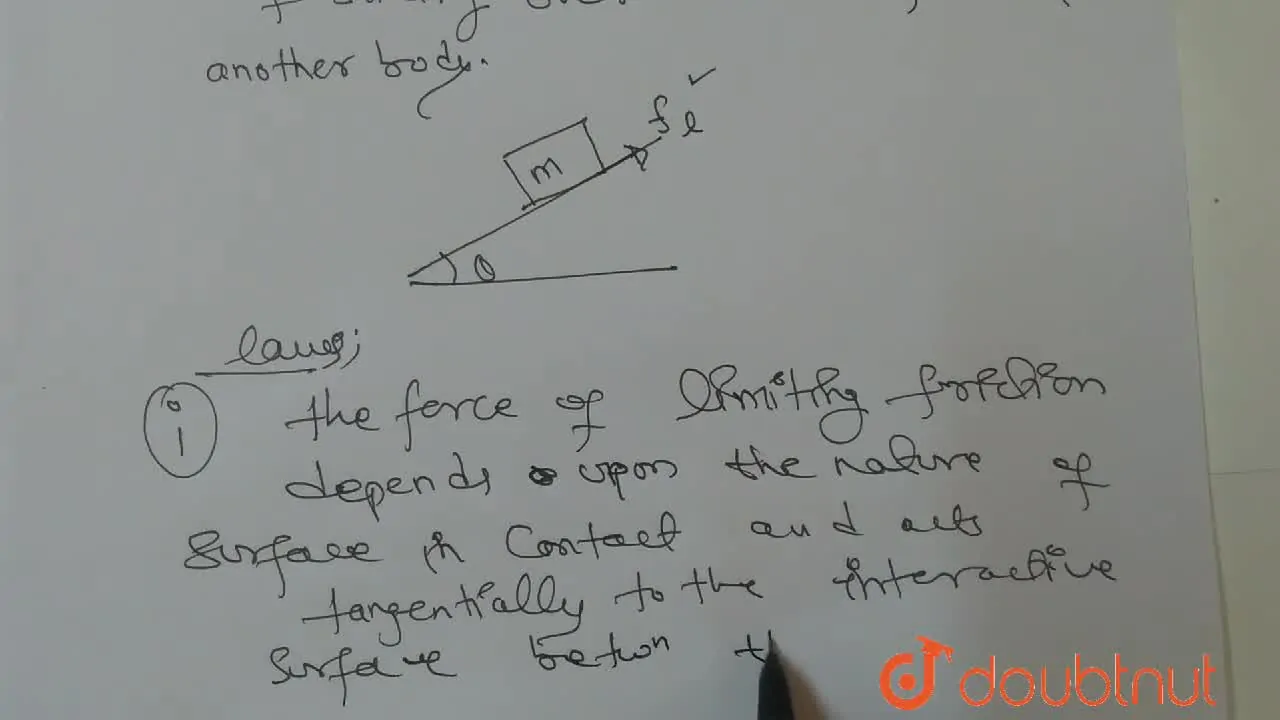 another body.
fl
m
θ
laws;
i
the force of limiting friction
depends upon the nature of
surface in contact and acts
tangentially to the interactive
surface betwn th
doubtnut